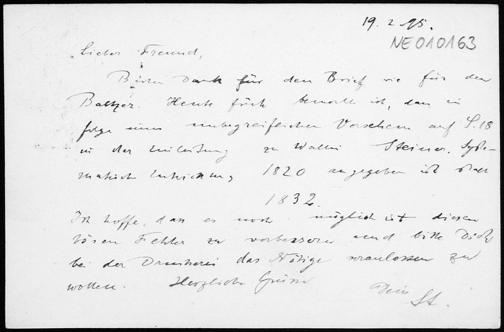 19. 2. 95.
NE010163
Lieber Freund,
Besten Dank für den Brief wie für den
Baltzer. Heute früh bemerkte ich, dass in
folge eines unbegreiflichen Versehens auf S. 18
in der Einleitung zu Wallis Steiner, Syste-
matische Entwicklung 1820 angegeben ist statt
1832.
Ich hoffe, dass es noch möglich ist diesen
bösen Fehler zu verbessern und bitte Dich
bei der Druckerei das Nötige veranlassen zu
wollen. Herzliche Grüsse
Dein
St.